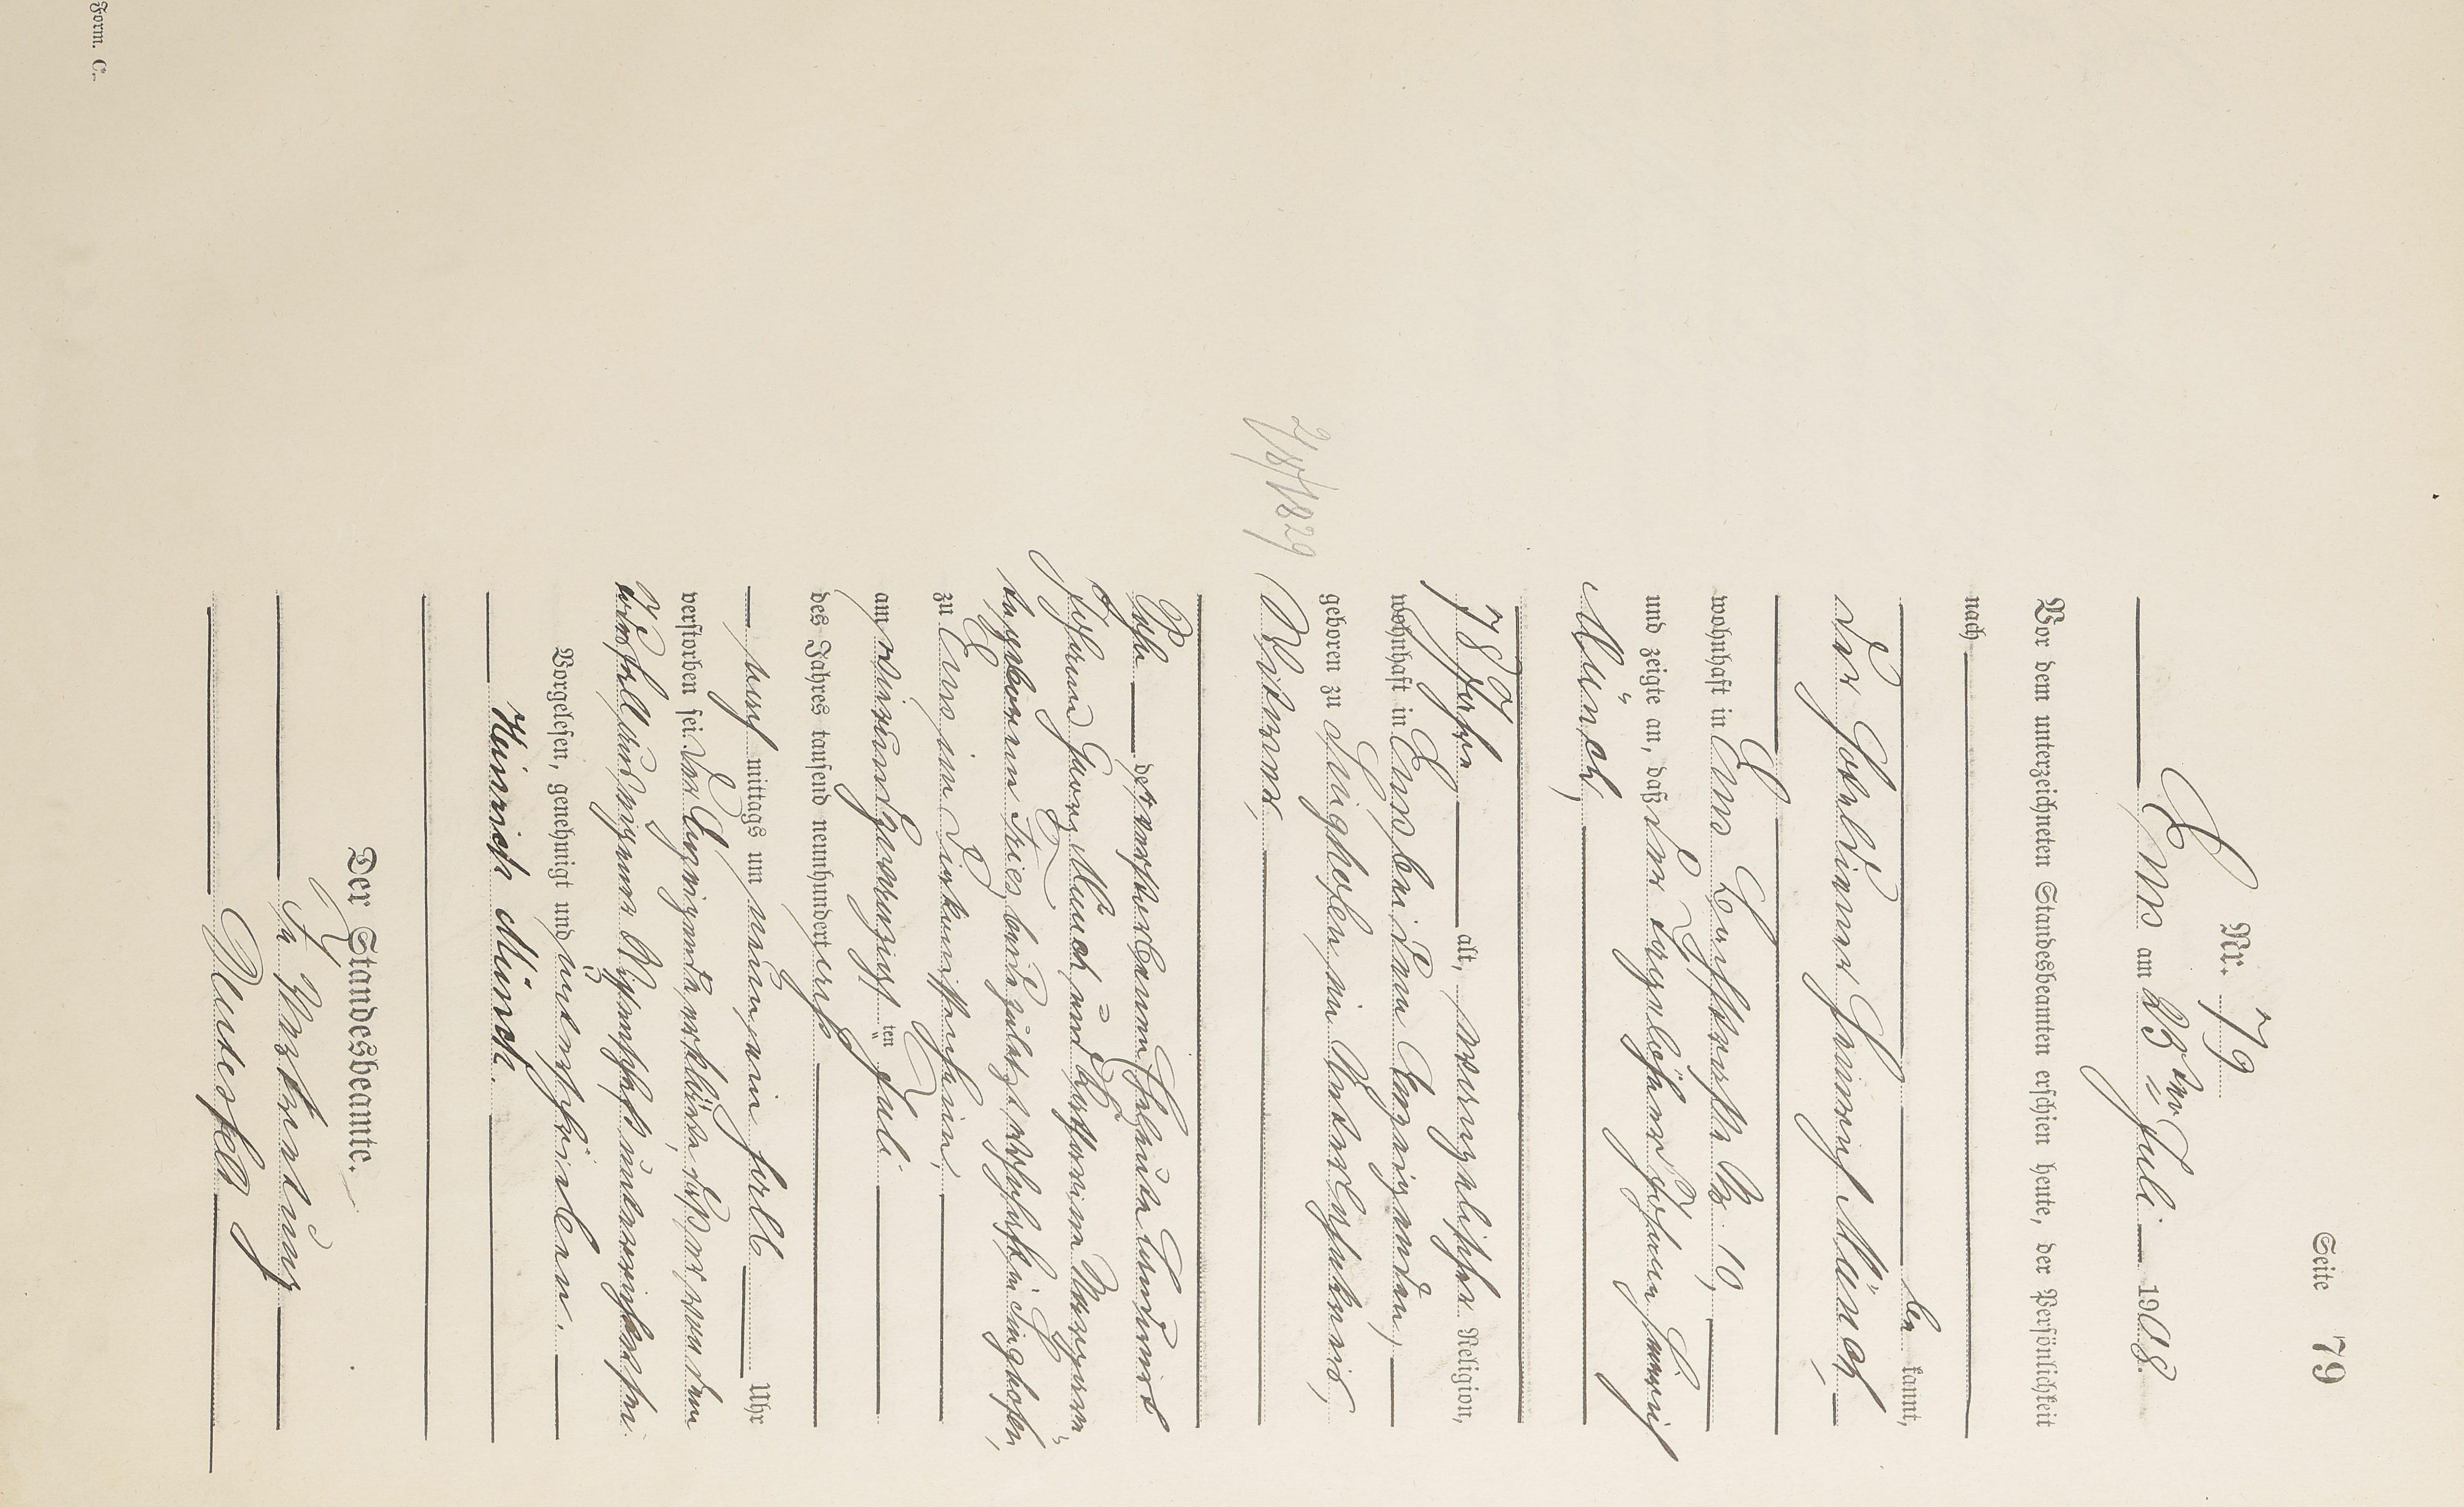 Seite 79
Nr. 79
Ems am 25ten Juli 1908.
Vor dem unterzeichneten Standesbeamten erschien heute, der Persönlichkeit
nach
be kannt,
der Hoteldiener Heinrich Münch,
wohnhaft in Ems Bachstraße Nr. 10,
und zeigte an, daß der Tagelöhner Johann Heinrich
Münch,
78 Jahre alt, evangelischer Religion,
wohnhaft in Ems bei dem Anzeigenden,
geboren zu Singhofen, im Unterlahnkreis,
2/8/1829 Witwer,
Sohn der verstorbenen Eheleute Landwirt
Johann Georg Münch und
geborenen Fries, beide zuletzt wohnhaft in Singhofen,
zu Ems im Diakonissenheim,
am vierundzwanzigsten Juli
des Jahres tausend neunhundert acht
nach mittags um ein halb Uhr
verstorben sei. Der Anzeigende erklärte, daß er von dem
Todesfall aus eigener Wissenschaft unterrichtet sei.
Vorgelesen, genehmigt und unterschrieben.
Heinrich Münch.
Der Standesbeamte.
In Vertretung
Form. C.